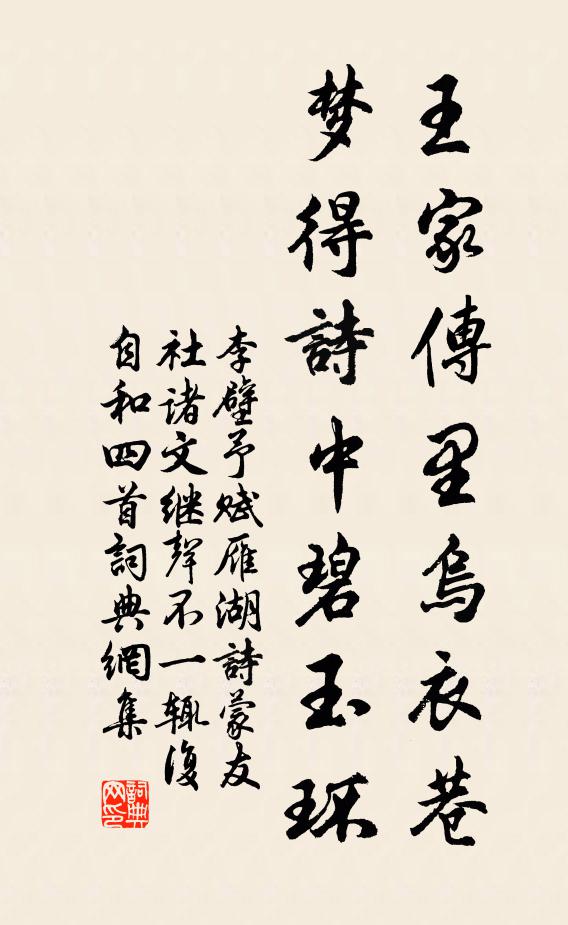 王家傳里烏衣巷
梦得詩中碧玉环
李壁予赋雁湖詩蒙友
社诸文继聲不一辄復
自和四首詞典網集
詞典网印